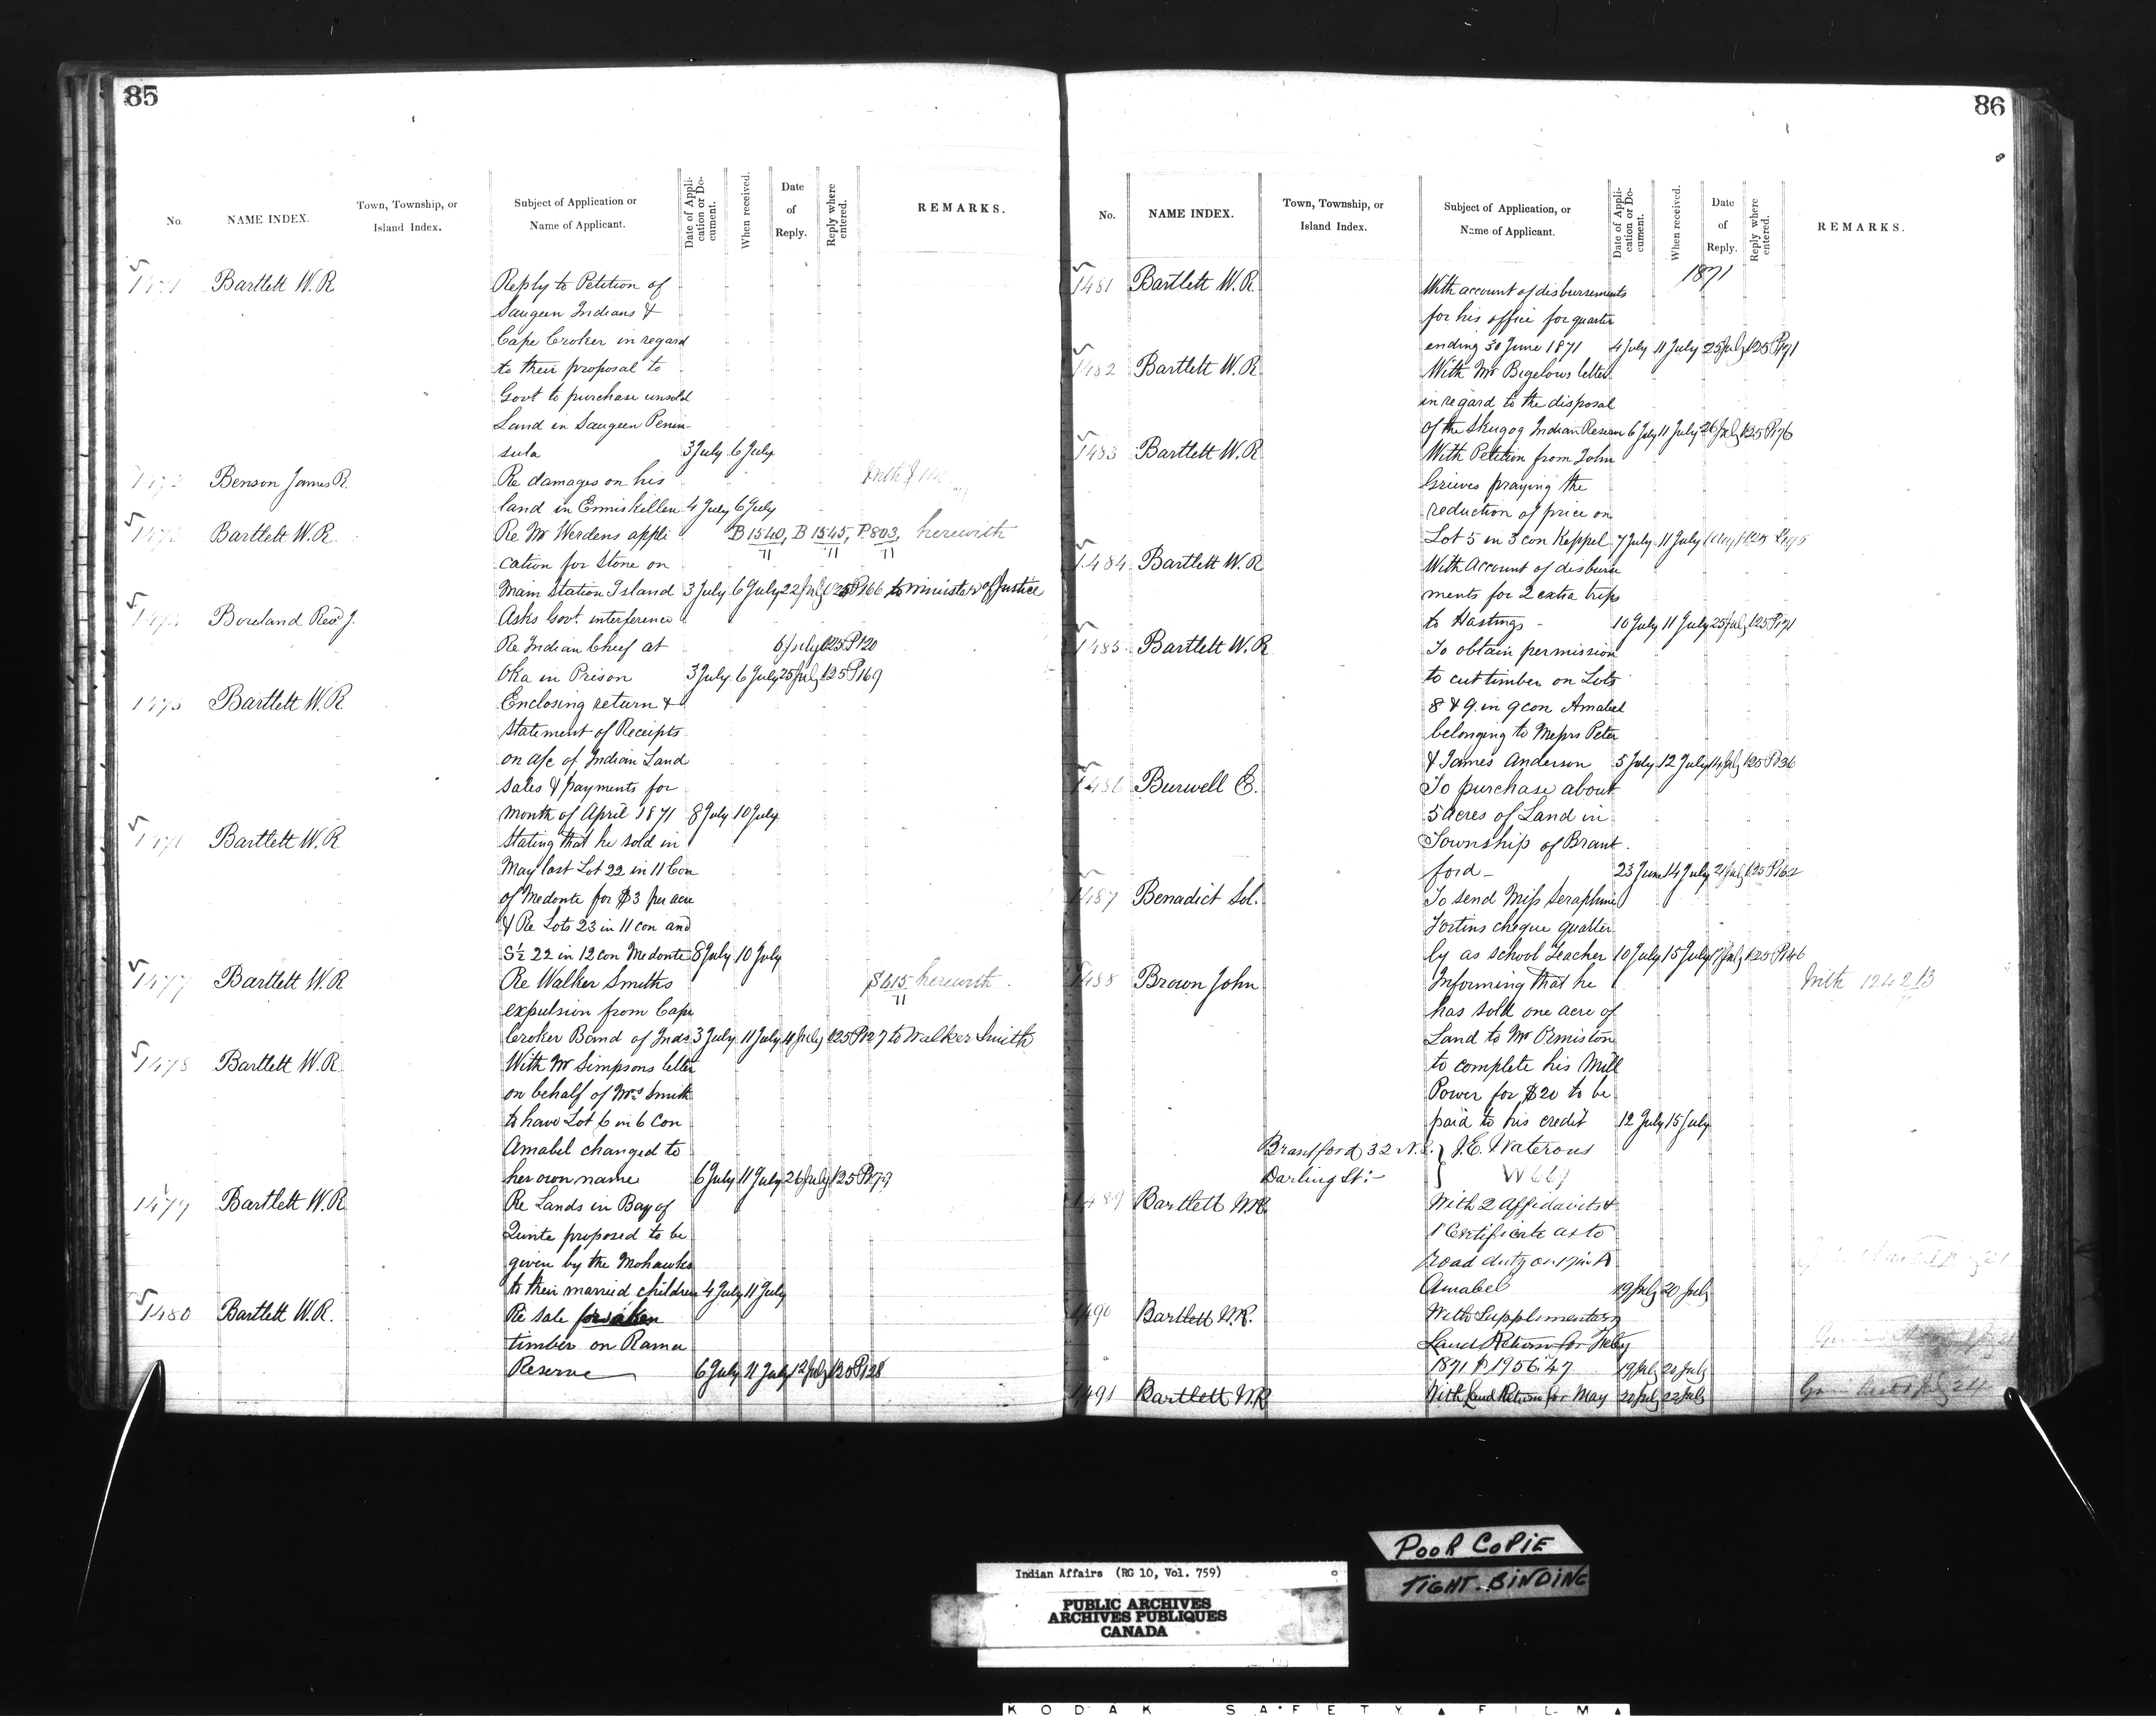 85
No.
NAME INDEX.
Town, Township, or
Island Index.
Subject of Application or
Name of Applicant.
Date of Appli-
cation or Do-
cument.
When received.
Date
of
Reply.
Reply where
entered.
REMARKS.
1471 Bartlett W. R Reply to Petition of
Saugeen Indians &
Cape Croker in regard
to their proposal to
Govt to purchase unsold
Land in Saugeen Penin
sula 3 July 6 July
1472 Benson James R. Re damages on his
land in Enniskillen 4 July 6 July
1473 Bartlett W. R. Re Mr Werdens appli B 1540, B 1545, P. 803, herewith
71 71 71
cation for Stone on
Main Station Island 3 July 6 July 22 July 125 P166 to Minister of Justice
1474 Boreland Revd J. Asks Govt. interference
Re Indian Chief at 6 July 125 P120
Oka in Prison 3 July 6 July 25 July 125 P169
1475 Bartlett W. R. Enclosing return &
Statement of Receipts
on a/c of Indian Land
sales & payments for
month of April 1871 8 July 10 July
1476 Bartlett W. R Stating that he sold in
May last Lot 22 in 11 Con
of Medonte for $3 per acre
& Re Lots 23 in 11 con and
S½ 22 in 12 con Medonte 8 July 10 July
1477 Bartlett W. R Re Walker Smiths S 615 herewith
71
expulsion from Cape
Croker Band of Inds 3 July 11 July 11 July 125 P127 to Walker Smith
1478 Bartlett W. R. With Mr Simpsons letter
on behalf of Mrs Smith
to have Lot 6 in 6 Con
Amabel changed to
her own name 6 July 11 July 26 July 125 P179
1479 Bartlett W. R Re Lands in Bay of
Quinte proposed to be
given by the Mohawks
to their married children 4 July 11 July
1480 Bartlett W. R. Re sale
timber on Rama
Reserve 6 July 11 July 12 July 125 P128
86
No.
NAME INDEX.
Town, Township, or
Island Index.
Subject of Application, or
Name of Applicant.
Date of Appli-
cation or Do-
cument.
When received.
Date
of
Reply.
Reply where
entered.
REMARKS.
1871
1481 Bartlett W. R. With account of disbursements
for his office for quarter
ending 30 June 1871 4 July 11 July 25 July 125 P171
1482 Bartlett W. R With Mr Bigelows letter
in regard to the disposal
of the Skugog Indian Reserve 6 July 11 July 26 July 125 P176
1483 Bartlett W. R With Petition from John
Grieves praying the
reduction of price on
Lot 5 in 3 con Keppel 7 July 11 July
1484 Bartlett W. R With Account of disburse
ments for 2 extra trips
to Hastings - 10 July 11 July 25 July 125 P171
1485 Bartlett W. R To obtain permission
to cut timber on Lots
8 & 9 in 9 con Amabel
belonging to Messrs Peter
& James Anderson 5 July 12 July 14 July 125 P136
1486 Burwell E. To purchase about
5 acres of Land in
Township of Brant
ford - 23 June 14 July 21 July 125 P162
1487 Benadict Sol. To send Miss Seraphine
Fortins cheque quatter
ly as school Teacher 10 July 15 July 17 July 125 P146
1488 Brown John Informing that he With 1242 B
71
has sold one acre of
Land to Mr Ormiston
to complete his Mill
Power for $20 to be
paid to his credit 12 July 15 July
Brantford 32 N.S. } J. E. Waterous
Darling St:- } W 669
1489 Bartlett W. R. With 2 Affidavits &
1 Certificate as to
Road duty on 17 in A
Amabel 19 July 20 July
1490 Bartlett W. R. With Supplimentary
Land Return for Feby
1871 $1956.47 19 July 22 July
1491 Bartlett W. R With Land Return for May 20 July 22 July
POOR COPIE
TIGHT. BINDING
Indian Affairs (RG 10, Vol. 759)
PUBLIC ARCHIVES
ARCHIVES PUBLIQUES
CANADA
KODAK SAFETY FILM